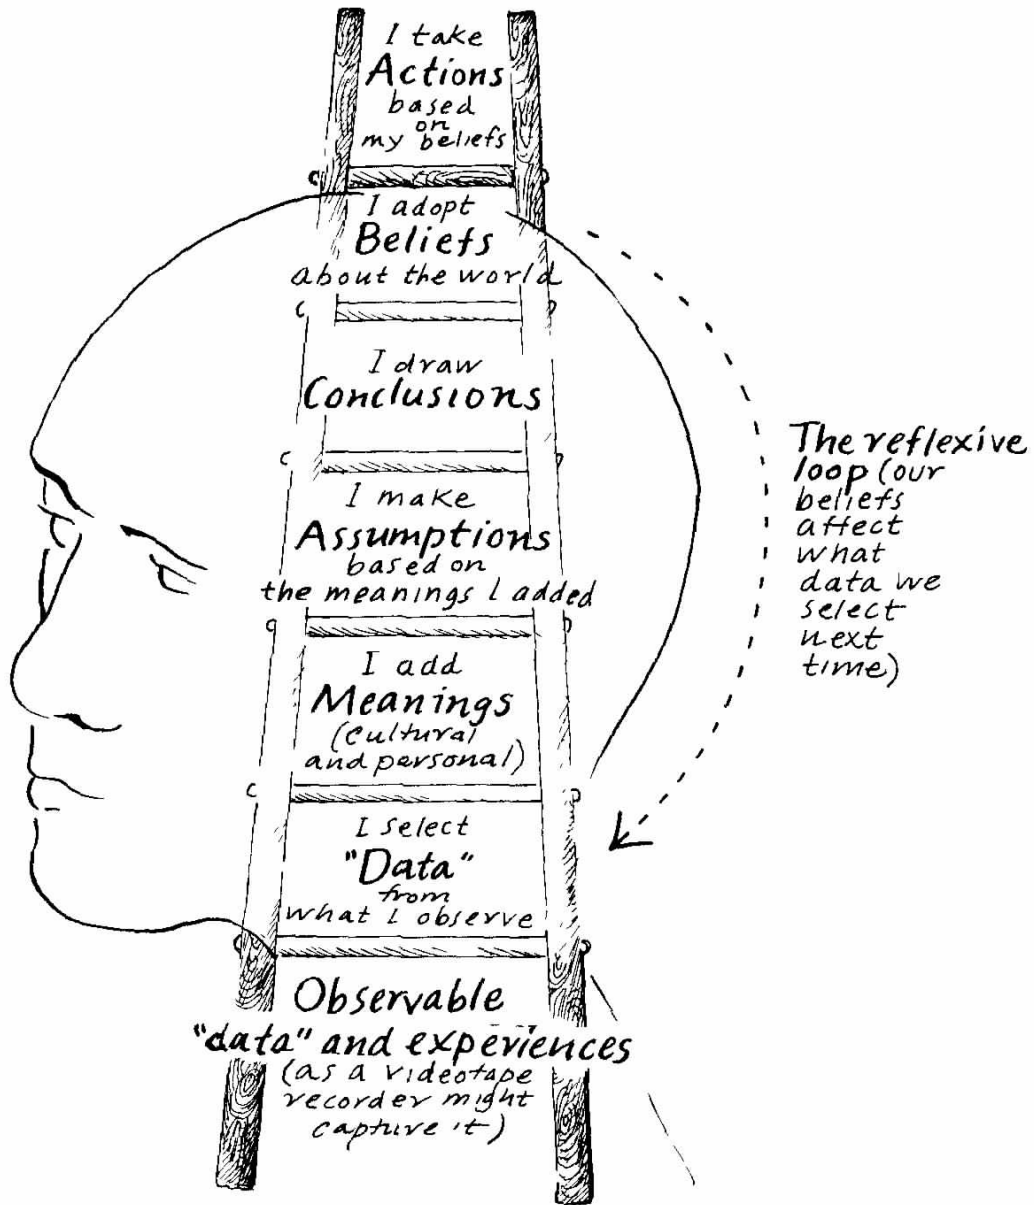 I take
Actions
based
on
my beliefs
I adopt
Beliefs
about the world
I draw
Conclusions
I make
Assumptions
based on
the meanings I added
I add
Meanings
(cultural
and personal)
I select
"Data"
from
what I observe
Observable
"data" and experiences
(as a videotape
recorder might
capture it)
The reflexive
loop (our
beliefs
affect
what
data we
select
next
time)